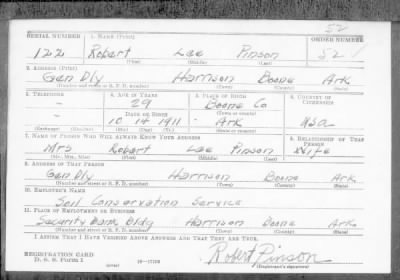 52
SERIAL NUMBER 1. NAME (Print) ORDER NUMBER
122 Robert Lee Pinson 52
(First) (Middle) (Last)
2. ADDRESS (Print)
Gen Dly Harrison Boone Ark
(Number and street or R. F. D. number) (Town) (County) (State)
3. TELEPHONE 4. AGE IN YEARS 5. PLACE OF BIRTH 6. COUNTRY OF CITIZENSHIP
- 29 Boone Co
DATE OF BIRTH (Town or county)
- 10 14 1911 Ark USA
(Exchange) (Number) (Mo.) (Day) (Yr.) (State or country)
7. NAME OF PERSON WHO WILL ALWAYS KNOW YOUR ADDRESS 8. RELATIONSHIP OF THAT PERSON
Mrs Robert Lee Pinson Wife
(Mr., Mrs., Miss) (First) (Middle) (Last)
9. ADDRESS OF THAT PERSON
Gen Dly Harrison Boone Ark
(Number and street or R. F. D. number) (Town) (County) (State)
10. EMPLOYER'S NAME
Soil Conservation Service
11. PLACE OF EMPLOYMENT OR BUSINESS
Security Bank Bldg Harrison Boone Ark
(Number and street or R. F. D. number) (Town) (County) (State)
I AFFIRM THAT I HAVE VERIFIED ABOVE ANSWERS AND THAT THEY ARE TRUE.
REGISTRATION CARD
D. S. S. Form 1 (over) Robert Pinson
(Registrant's signature)